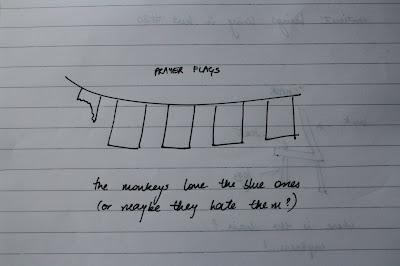 PRAYER FLAGS
the monkeys love the blue ones
(or maybe they hate them?)